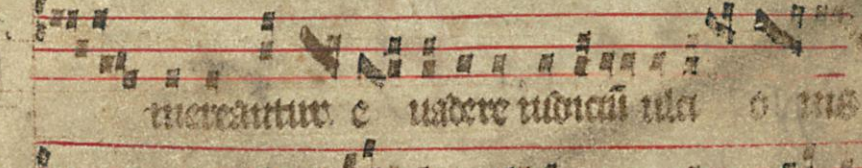 mereantur e uadere iudiciū ulci o nis